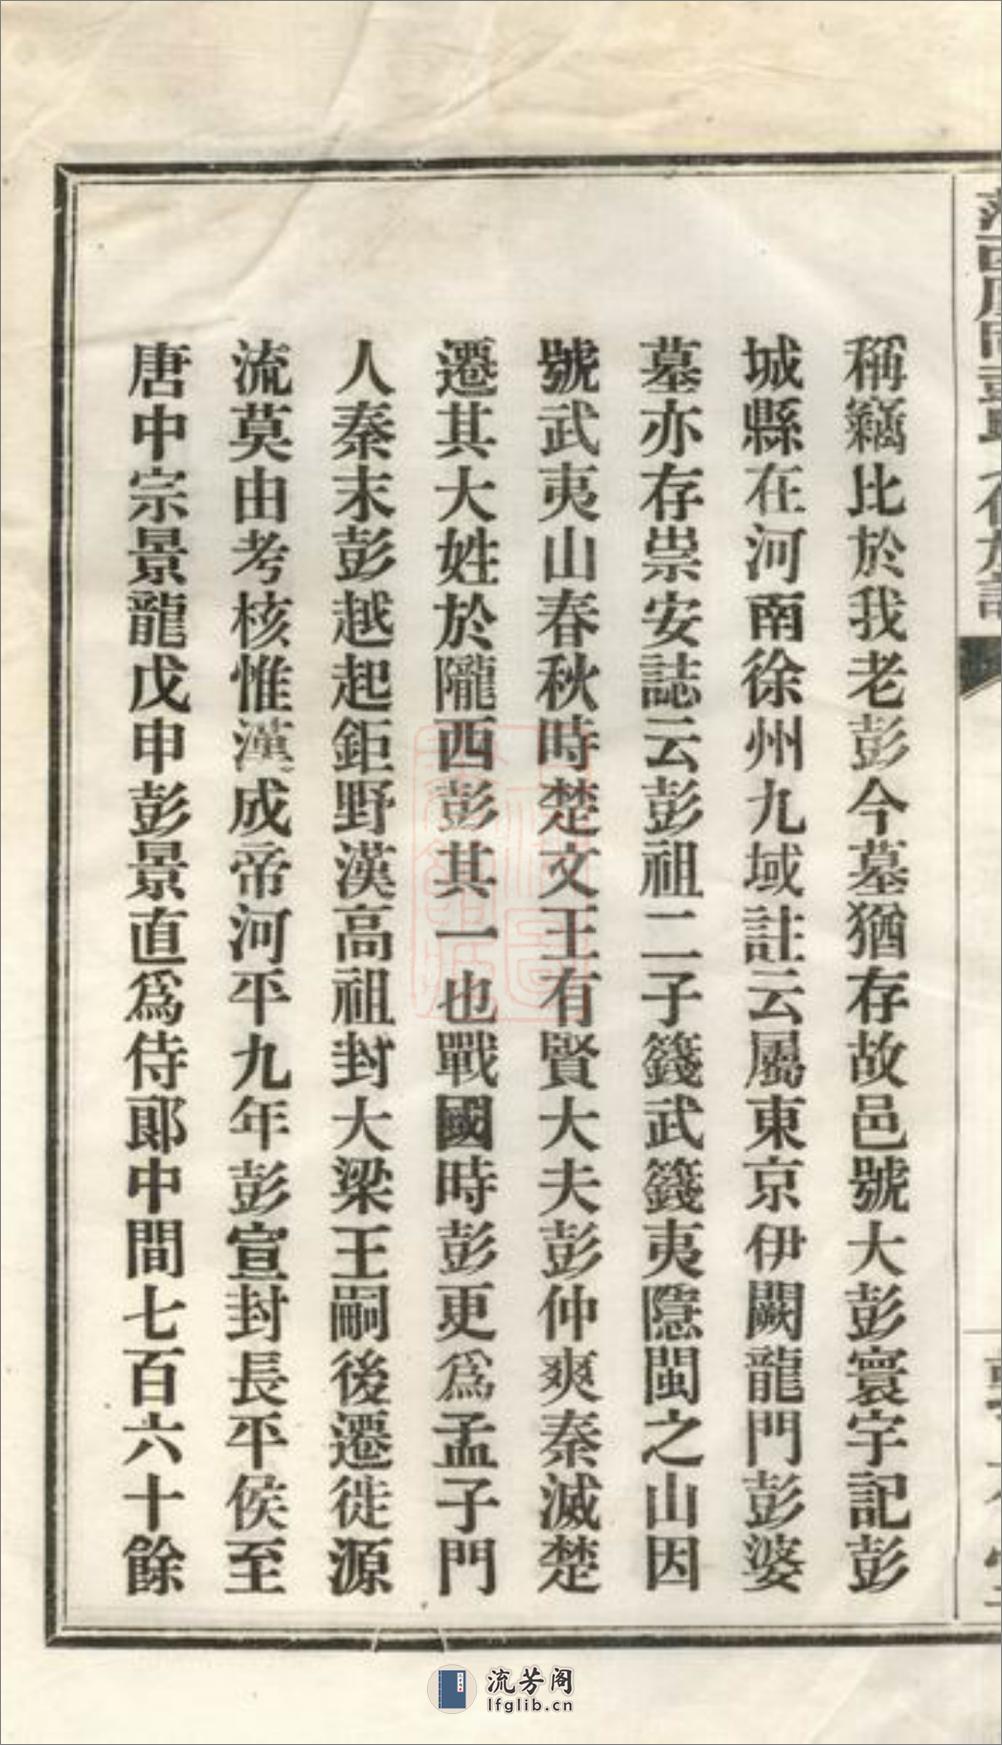 稱竊比於我老彭今墓猶存故邑號大彭寰宇記彭
城縣在河南徐州九域註云屬東京伊闕龍門彭婆
墓亦存崇安誌云彭祖二子籛武籛夷隱閩之山因
號武夷山春秋時楚文王有賢大夫彭仲爽秦滅楚
遷其大姓於隴西彭其一也戰國時彭更為孟子門
人秦末彭越起鉅野漢高祖封大梁王嗣後遷徙源
流莫由考核惟漢成帝河平九年彭宣封長平侯至
唐中宗景龍戊申彭景直為侍郎中間七百六十餘
流芳阁
lfglib.cn